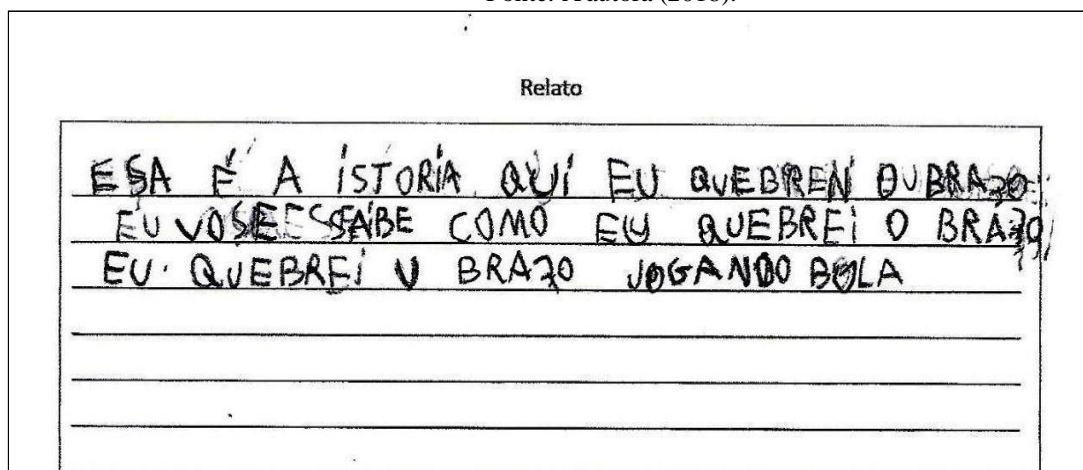 Relato
ESA É A iSTORiA QUi EU QUEBREN OU BRAZO
EU VOSEE SAIBE COMO EU QUEBREi O BRAZO
EU QUEBREi U BRAZO JOGANDO BOLA